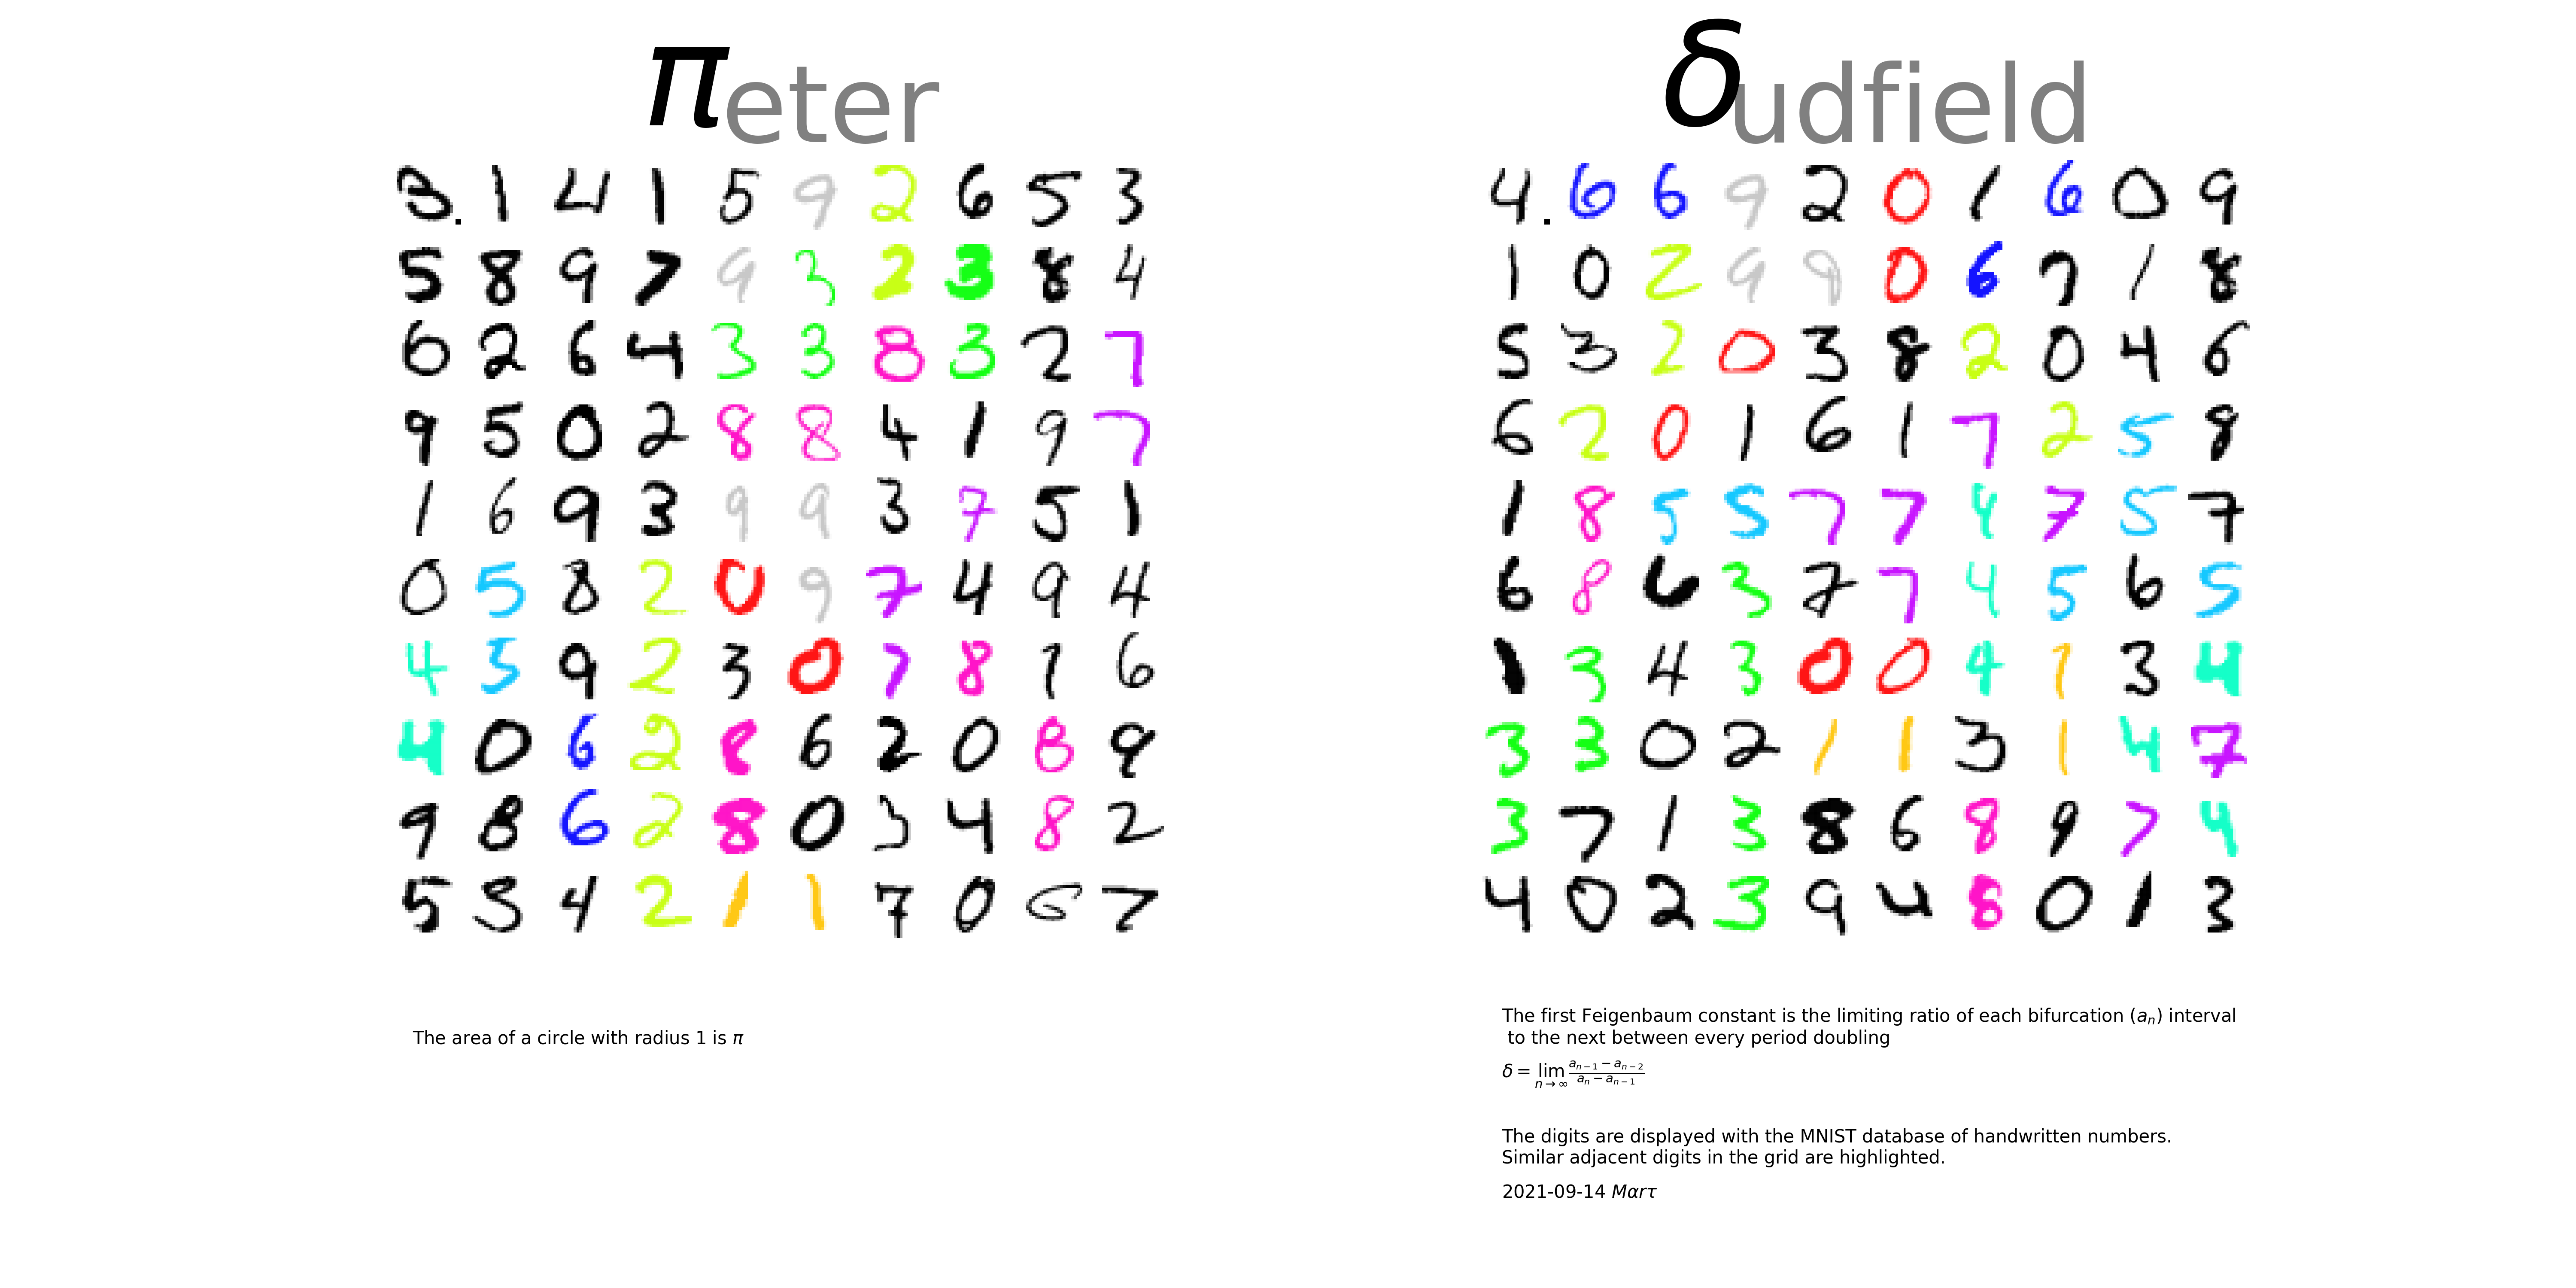 πeter
3. 1 4 1 5 9 2 6 5 3
5 8 9 7 9 3 2 3 8 4
6 2 6 4 3 3 8 3 2 7
9 5 0 2 8 8 4 1 9 7
1 6 9 3 9 9 3 7 5 1
0 5 8 2 0 9 7 4 9 4
4 5 9 2 3 0 7 8 1 6
4 0 6 2 8 6 2 0 8 9
9 8 6 2 8 0 3 4 8 2
5 3 4 2 1 1 7 0 6 7
The area of a circle with radius 1 is π
δudfield
4. 6 6 9 2 0 1 6 0 9
1 0 2 9 9 0 6 7 1 8
5 3 2 0 3 8 2 0 4 6
6 2 0 1 6 1 7 2 5 8
1 8 5 5 7 7 4 7 5 7
6 8 6 3 7 7 4 5 6 5
1 3 4 3 0 0 4 1 3 4
3 3 0 2 1 1 3 1 4 7
3 7 1 3 8 6 8 9 7 4
4 0 2 3 9 4 8 0 1 3
The first Feigenbaum constant is the limiting ratio of each bifurcation (aₙ) interval
to the next between every period doubling
δ = lim n→∞ (aₙ₋₁ − aₙ₋₂)/(aₙ − aₙ₋₁)
The digits are displayed with the MNIST database of handwritten numbers.
Similar adjacent digits in the grid are highlighted.
2021-09-14 Mαrτ